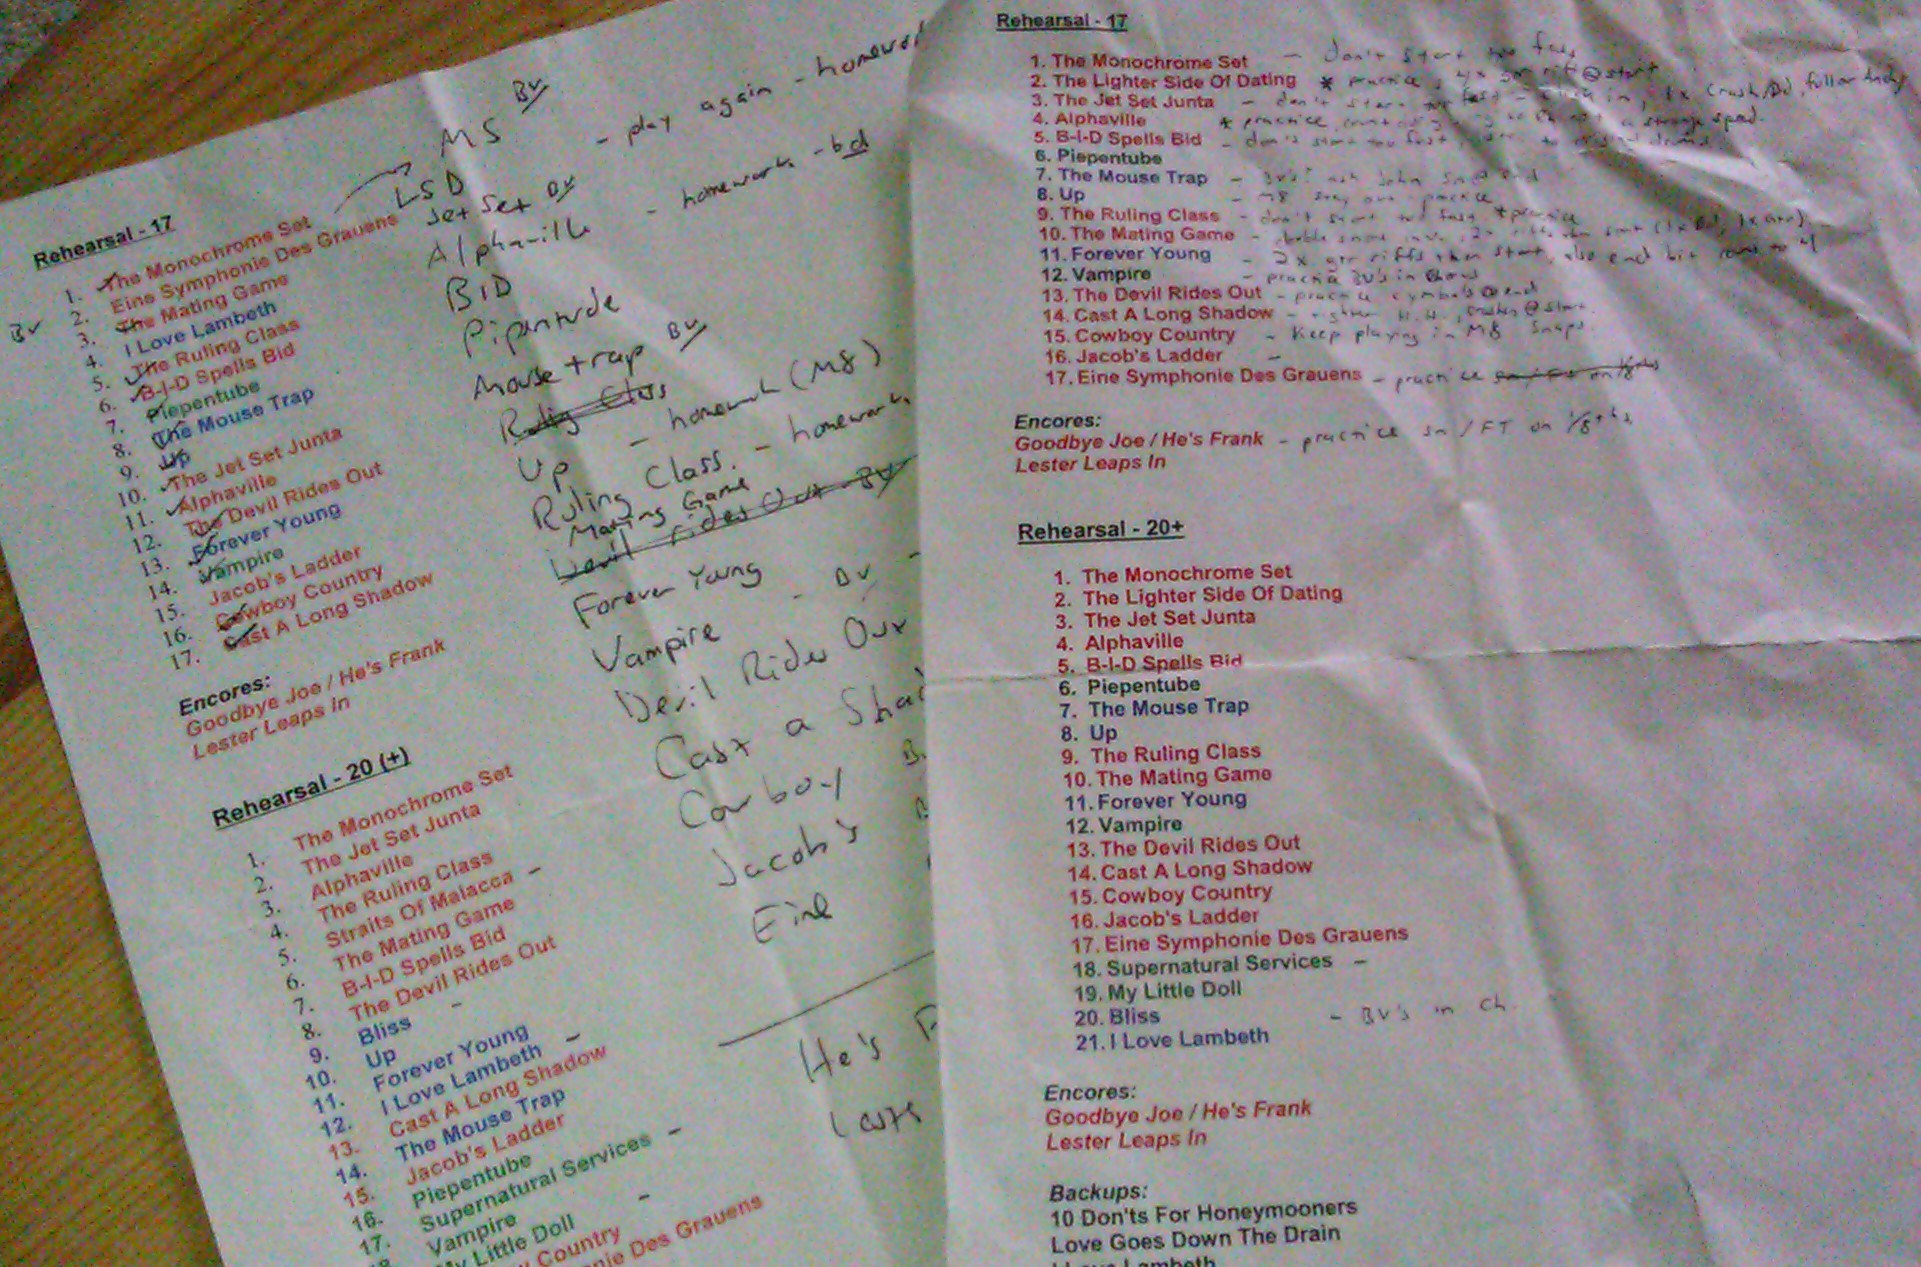 Rehearsal - 17
1. The Monochrome Set
2. Eine Symphonie Des Grauens
BV 3. The Mating Game
4. I Love Lambeth
5. The Ruling Class
6. B-I-D Spells Bid
7. Piepentube
8. The Mouse Trap
9. Up
10. The Jet Set Junta
11. Alphaville
12. The Devil Rides Out
13. Forever Young
14. Vampire
15. Jacob's Ladder
16. Cowboy Country
17. Cast A Long Shadow
Encores:
Goodbye Joe / He's Frank
Lester Leaps In
Rehearsal - 20 (+)
1. The Monochrome Set
2. The Jet Set Junta
3. Alphaville
4. The Ruling Class
5. Straits Of Malacca -
6. The Mating Game
7. B-I-D Spells Bid
8. The Devil Rides Out
9. Bliss -
10. Up
11. Forever Young
12. I Love Lambeth -
13. Cast A Long Shadow
14. The Mouse Trap
15. Jacob's Ladder
16. Piepentube
17. Supernatural Services -
Vampire
My Little Doll -
Country
Des Grauens
MS BV
LSD
Jet Set BV - play again - homework
Alphaville - homework - bd
BID
Pipentude
Mouse trap BV
Rulig Class
Up - homework (M8)
Ruling Class. - homework
Mating Game
Devil rides Out - BV
Forever Young
Vampire - BV -
Devil Rides Out
Cast a Shad
Cowboy
Jacob's
Eine
He's F
Rehearsal - 17
1. The Monochrome Set - don't start too fast
2. The Lighter Side Of Dating * practice, 4x gtr riff @ start
3. The Jet Set Junta - don't start too fast
4. Alphaville * practice
5. B-I-D Spells Bid - don't start too fast
6. Piepentube
7. The Mouse Trap
8. Up - M8 practice
9. The Ruling Class - don't start too fast practice
10. The Mating Game
11. Forever Young - 2x gtr riffs then start
12. Vampire - practice BV's in
13. The Devil Rides Out - practice cymbals @ end
14. Cast A Long Shadow
15. Cowboy Country - Keep playing in M8 snaps
16. Jacob's Ladder -
17. Eine Symphonie Des Grauens - practice
Encores:
Goodbye Joe / He's Frank - practice sn / FT on 1/8ths
Lester Leaps In
Rehearsal - 20+
1. The Monochrome Set
2. The Lighter Side Of Dating
3. The Jet Set Junta
4. Alphaville
5. B-I-D Spells Bid
6. Piepentube
7. The Mouse Trap
8. Up
9. The Ruling Class
10. The Mating Game
11. Forever Young
12. Vampire
13. The Devil Rides Out
14. Cast A Long Shadow
15. Cowboy Country
16. Jacob's Ladder
17. Eine Symphonie Des Grauens
18. Supernatural Services -
19. My Little Doll
20. Bliss - BV's in Ch.
21. I Love Lambeth
Encores:
Goodbye Joe / He's Frank
Lester Leaps In
Backups:
10 Don'ts For Honeymooners
Love Goes Down The Drain
I Love Lambeth